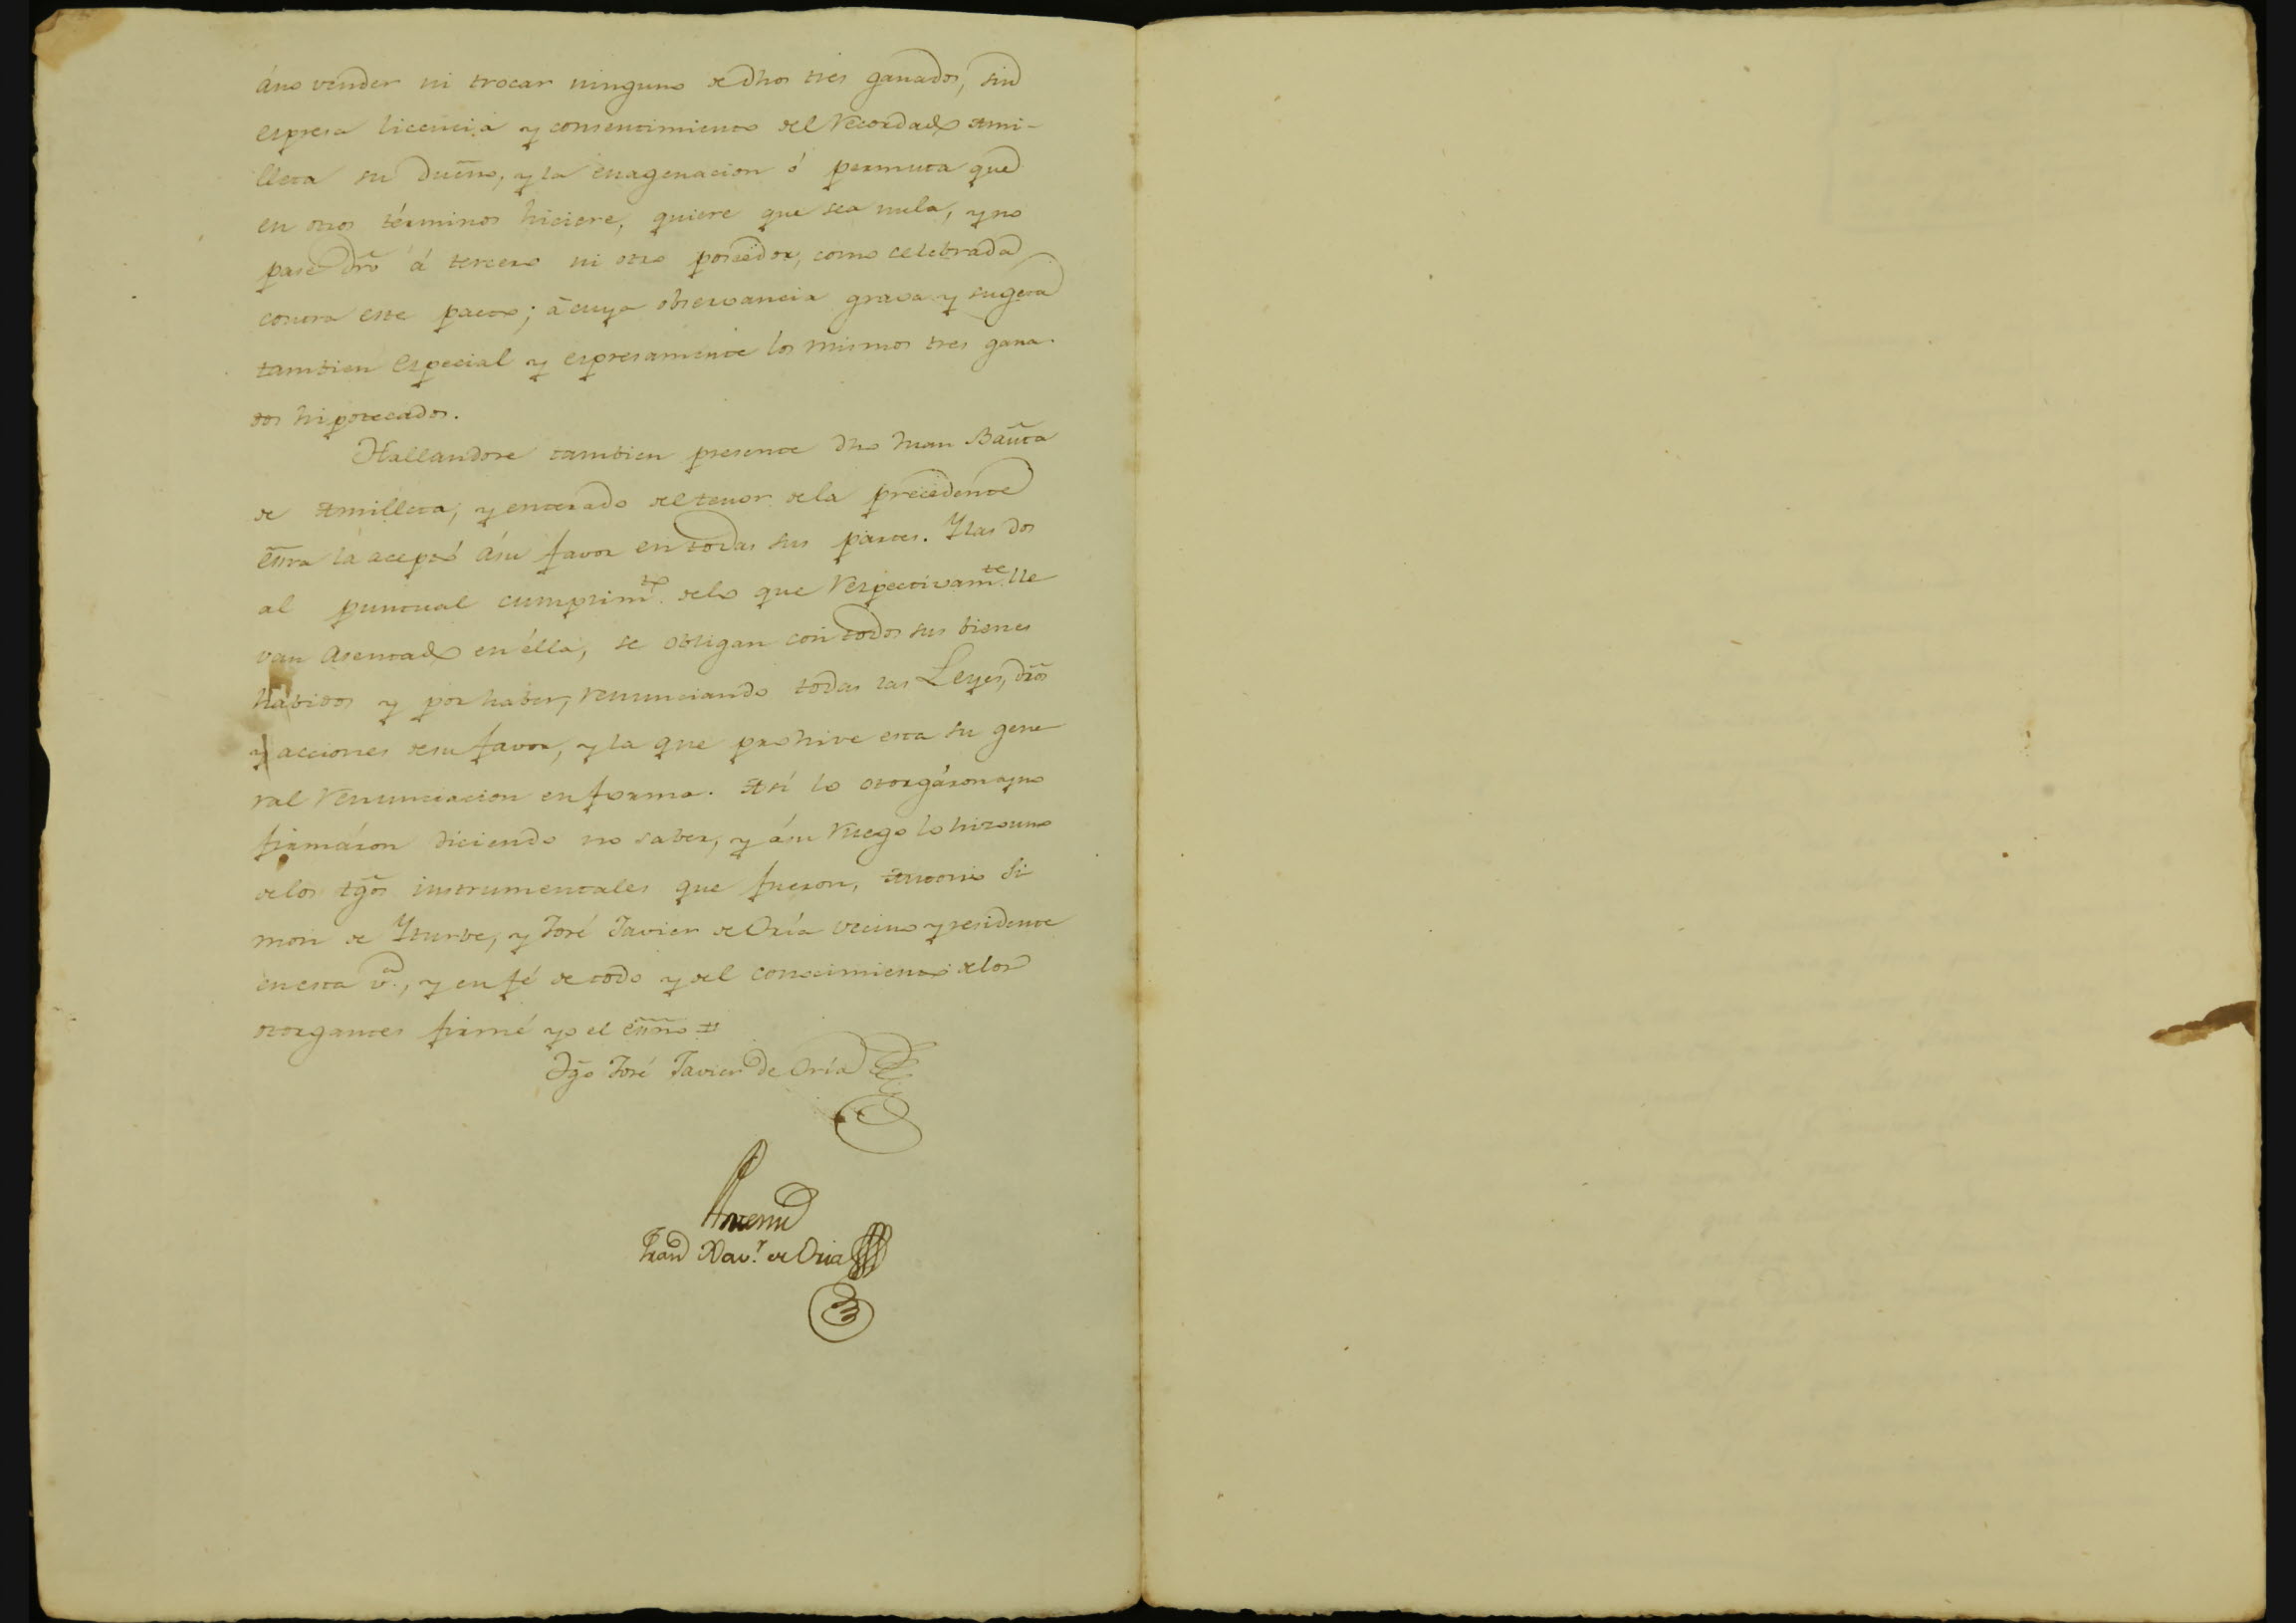 áno vender ni trocar ninguno de dhos tres ganados, sin
espresa licencia y consentimiento del recordado Ami-
lleta su dueño, y la enagenacion ó permuta que
en otros términos hiciere, quiere que sea nula, y no
pase dro á tercero ni otro poseedor, como celebrada
contra este pacto; á cuya observancia grava y sugeta
tambien especial y espresamente los mismos tres gana-
dos hipotecados.
Hallandose tambien presente dho Juan Bauta
de Amilleta, y enterado del tenor de la precedente
esra la aceptó ásu favor en todas sus partes. Y las dos
al puntual cumplimto. delo que respectivamte. lle
van asentado en élla, se obligan con todos sus bienes
habidos y por haber, renunciando todas las Leyes, dros
y acciones desu favor, y la que prohive esta su gene
ral renunciacion en forma. Así lo otorgáron y no
firmáron diciendo no saber, y ásu ruego lo hizo uno
delos tgos instrumentales que fueron, Antonio Si
mon de Yturbe, y José Javier de Oria vecino y residente
en esta va., y en fé de todo y del conocimiento delos
otorgantes firmé yo el esno
Tgo José Javier de Oria
Antemi
Fran Xavr. de Oria